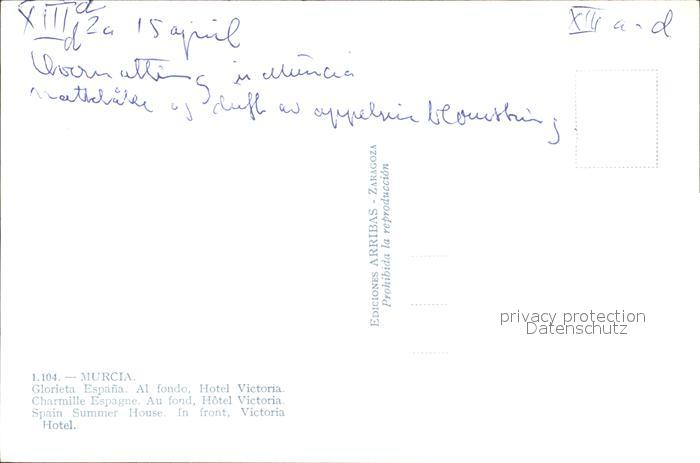 XIII d 2a 15 april
XIII a-d
Overnatting i Murcia
og duft av appelsin blomstring.
EDICIONES ARRIBAS - ZARAGOZA
Prohibida la reproducción
privacy protection
Datenschutz
1.104. — MURCIA.
Glorieta España. Al fondo, Hotel Victoria.
Charmille Espagne. Au fond, Hôtel Victoria.
Spain Summer House. In front, Victoria
Hotel.